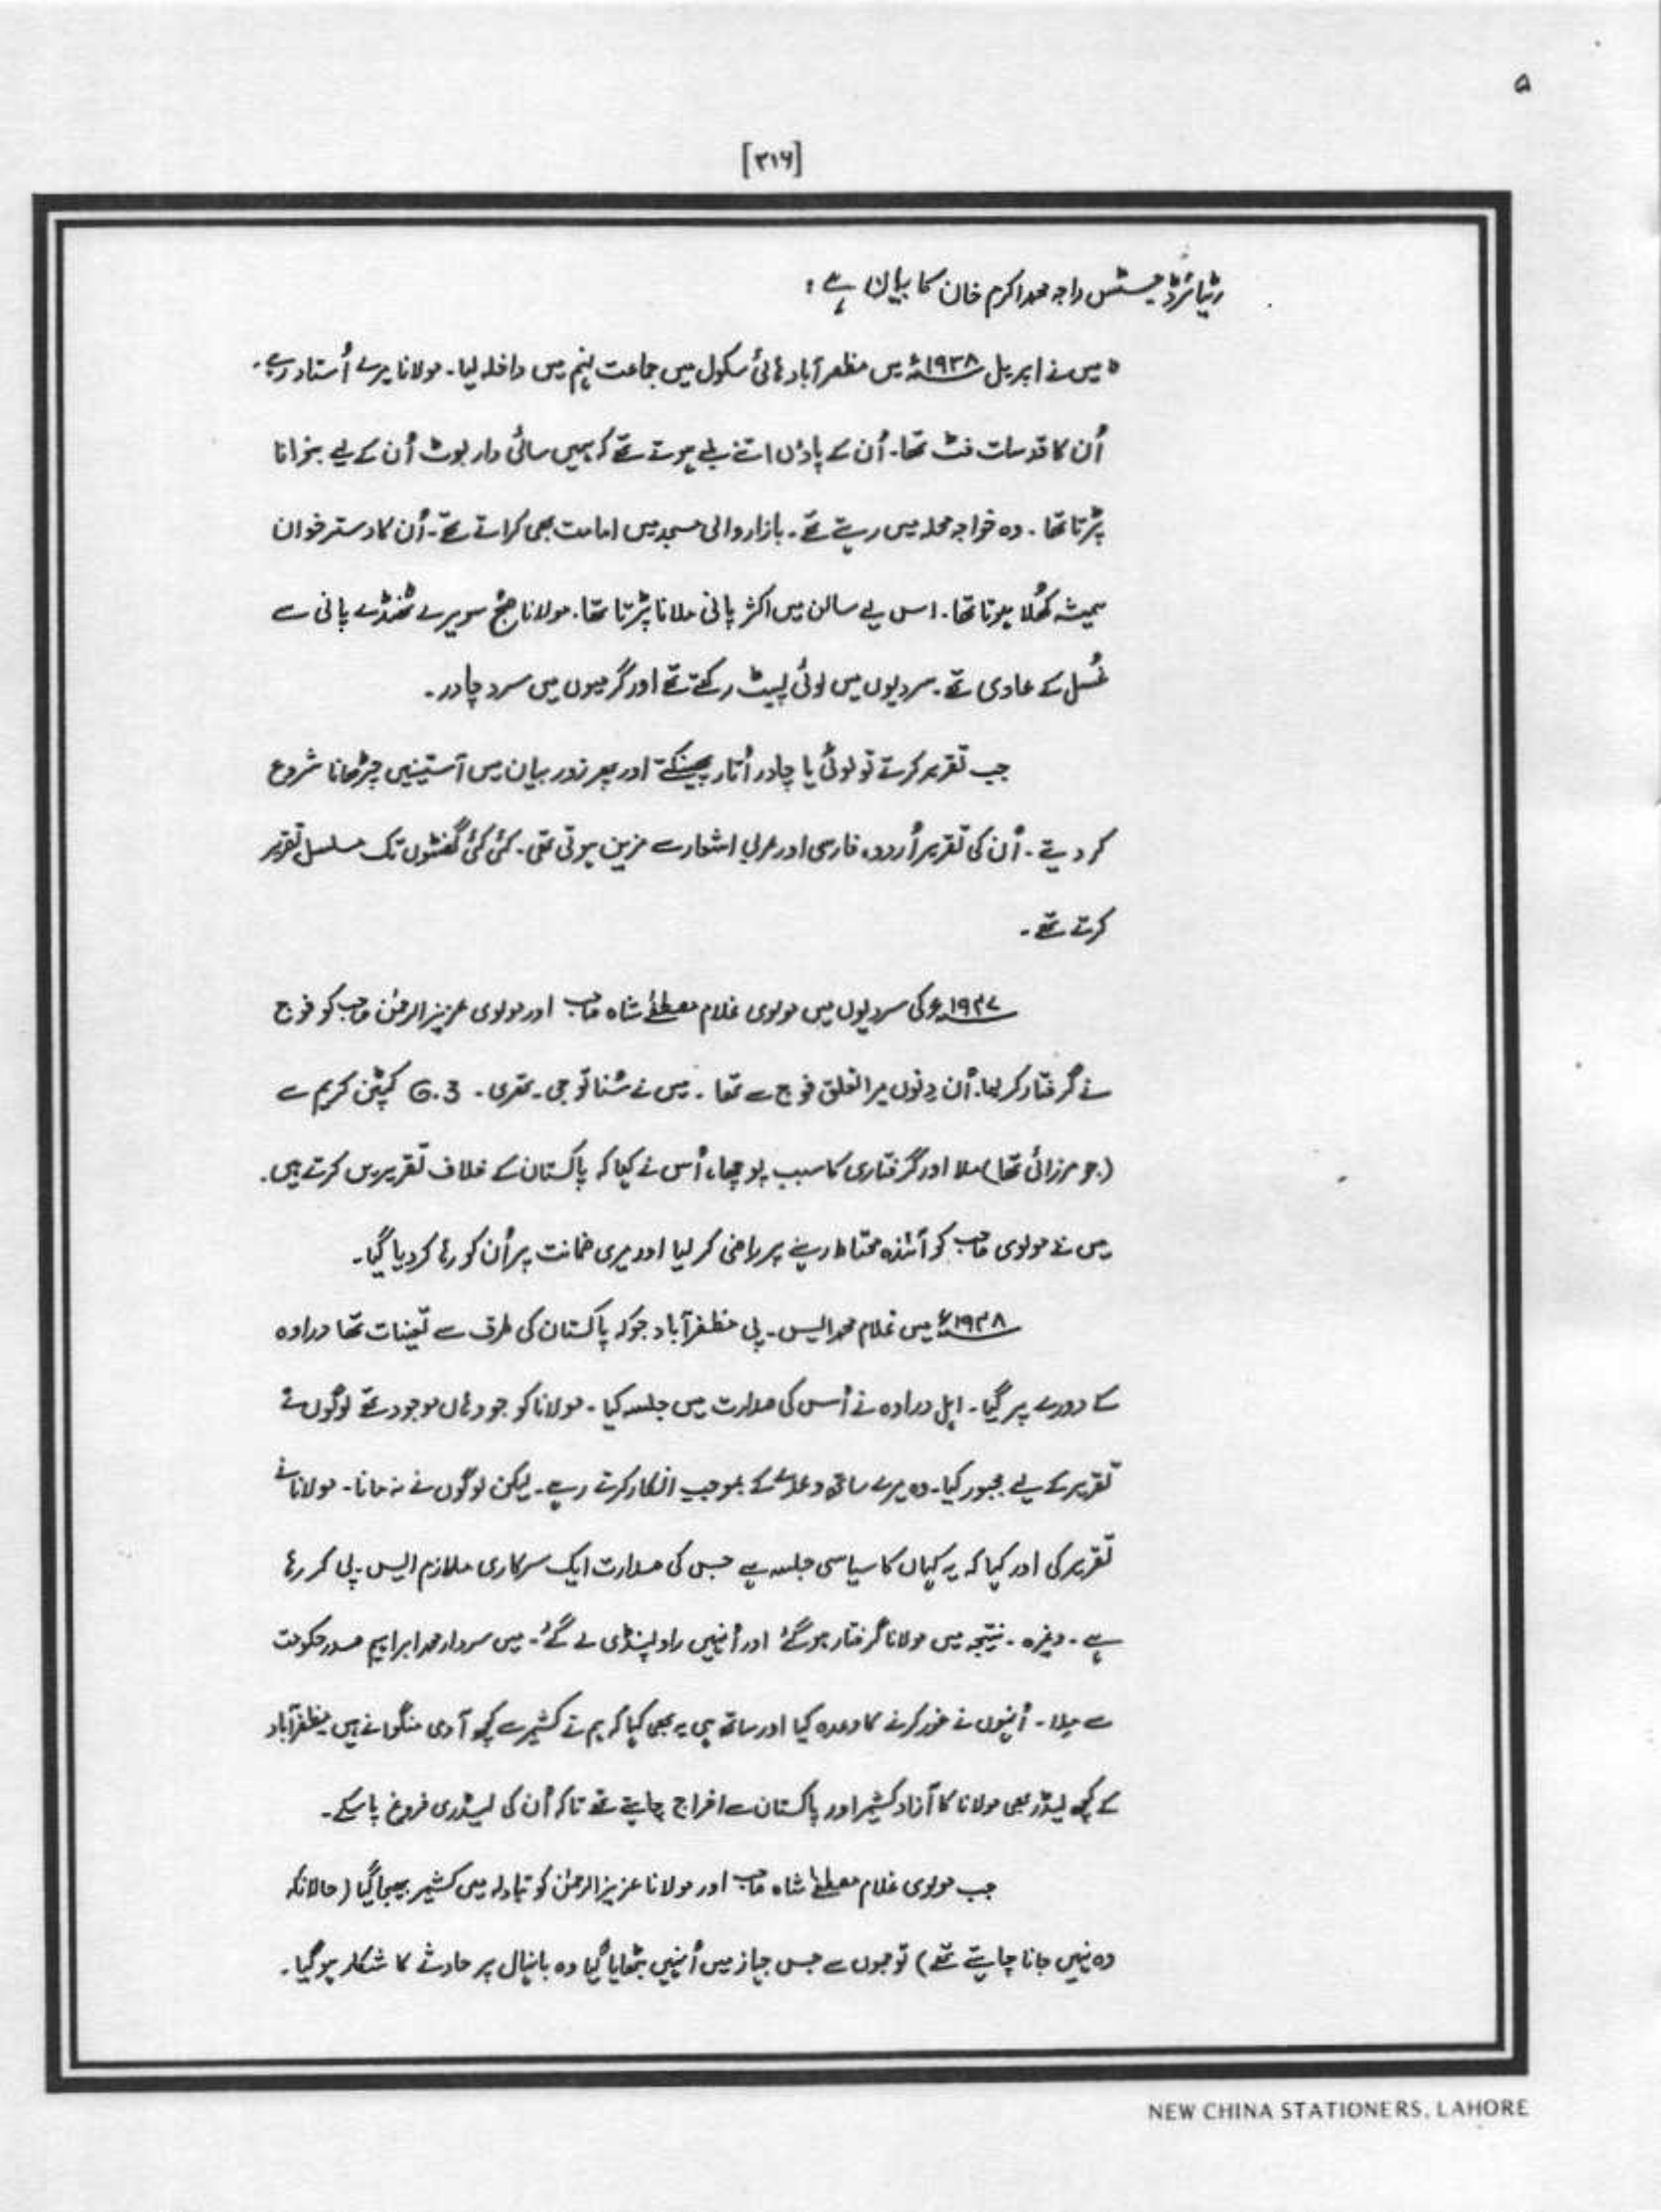 ۵
[۳۱۶]
ریٹائرڈ جسٹس راجہ محمد اکرم خان کا بیان ہے:
میں نے اپریل ۱۹۳۸ء میں مظفر آباد ہائی سکول میں جماعت پنجم میں داخلہ لیا۔ مولانا میرے اُستاد رہے۔
اُن کا قد سات فٹ تھا۔ اُن کے پاؤں اتنے بڑے ہوتے تھے کہ ہمیں سائی دار بوٹ اُن کے لیے بنوانا
پڑتا تھا۔ وہ خواجہ محلہ میں رہتے تھے۔ بازار والی مسجد میں امامت بھی کراتے تھے۔ اُن کا دسترخوان
ہمیشہ کھُلا ہوتا تھا۔ اس لیے سالن میں اکثر پانی ملانا پڑتا تھا۔ مولانا صبح سویرے ٹھنڈے پانی سے
غُسل کے عادی تھے۔ سردیوں میں لوئی لپیٹ رکھتے تھے اور گرمیوں میں سرد چادر۔
جب تقریر کرتے تو لوئی یا چادر اُتار پھینکتے اور پھر زور بیان میں آستینیں چڑھانا شروع
کر دیتے۔ اُن کی تقریر اُردو، فارسی اور عربی اشعار سے مزین ہوتی تھی۔ کئی کئی گھنٹوں تک مسلسل تقریر
کرتے تھے۔
۱۹۴۷ء کی سردیوں میں مولوی غلام مصطفےٰ شاہ صاحب اور مولوی عزیز الرحمٰن صاحب کو فوج
نے گرفتار کر لیا۔ اُن دِنوں میرا تعلق فوج سے تھا۔ میں نے سُنا تو جی۔ تھری۔ G.3 کیپٹن کریم سے
(جو مرزائی تھا) ملا اور گرفتاری کا سبب پوچھا، اُس نے کہا کہ پاکستان کے خلاف تقریریں کرتے ہیں۔
میں نے مولوی صاحب کو آئندہ محتاط رہنے پر راضی کر لیا اور میری ضمانت پر اُن کو رہا کر دیا گیا۔
۱۹۴۸ء میں غلام محمد ایس۔ پی مظفر آباد جو کہ پاکستان کی طرف سے تعینات تھا دراوہ
کے دورے پر گیا۔ اہل دراوہ نے اُس کی صدارت میں جلسہ کیا۔ مولانا کو جو وہاں موجود تھے لوگوں نے
تقریر کے لیے مجبور کیا۔ وہ میرے ساتھ وعدے کے بموجب انکار کرتے رہے۔ لیکن لوگوں نے نہ مانا۔ مولانا نے
تقریر کی اور کہا کہ یہ کہاں کا سیاسی جلسہ ہے جس کی صدارت ایک سرکاری ملازم ایس۔ پی کر رہا
ہے۔ وغیرہ۔ نتیجہ میں مولانا گرفتار ہو گئے اور اُنہیں راولپنڈی لے گئے۔ میں سردار محمد ابراہیم صدر حکومت
سے ملا۔ اُنہوں نے غور کرنے کا وعدہ کیا اور ساتھ ہی یہ بھی کہا کہ ہم نے کشمیر سے کچھ آدمی منگوانے ہیں مظفر آباد
کے کچھ لیڈر بھی مولانا کا آزاد کشمیر اور پاکستان سے اخراج چاہتے تھے تاکہ اُن کی لیڈری فروغ پا سکے۔
جب مولوی غلام مصطفےٰ شاہ صاحب اور مولانا عزیز الرحمٰن کو تبادلہ میں کشمیر بھیجا گیا (حالانکہ
وہ نہیں جانا چاہتے تھے) تو جموں سے جس جہاز میں اُنہیں بٹھایا گیا وہ بانہال پر حادثے کا شکار ہو گیا۔
NEW CHINA STATIONERS, LAHORE